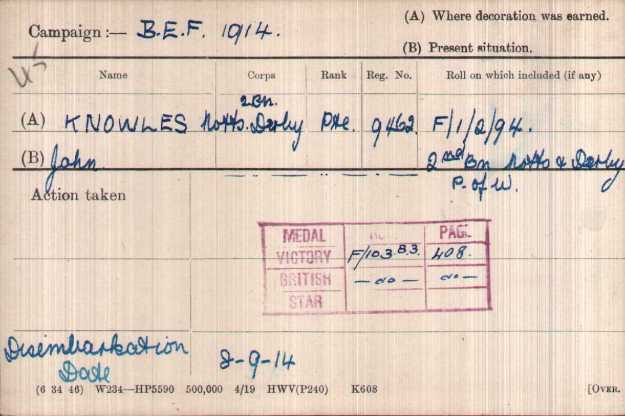 Campaign :— B.E.F. 1914.
(A) Where decoration was earned.
(B) Present situation.
Name Corps Rank Reg. No. Roll on which included (if any)
2Bn.
(A) KNOWLES Notts. Derby Pte. 9462 F/1/2/94.
(B) John 2nd Bn Notts & Derby
P. of W.
Action taken
MEDAL PAGE
VICTORY F/103.B.3. 408.
BRITISH — do — — do —
STAR
Disembarkation
Date 2-9-14
(6 34 46) W234—HP5590 500,000 4/19 HWV(P240) K608 [OVER.